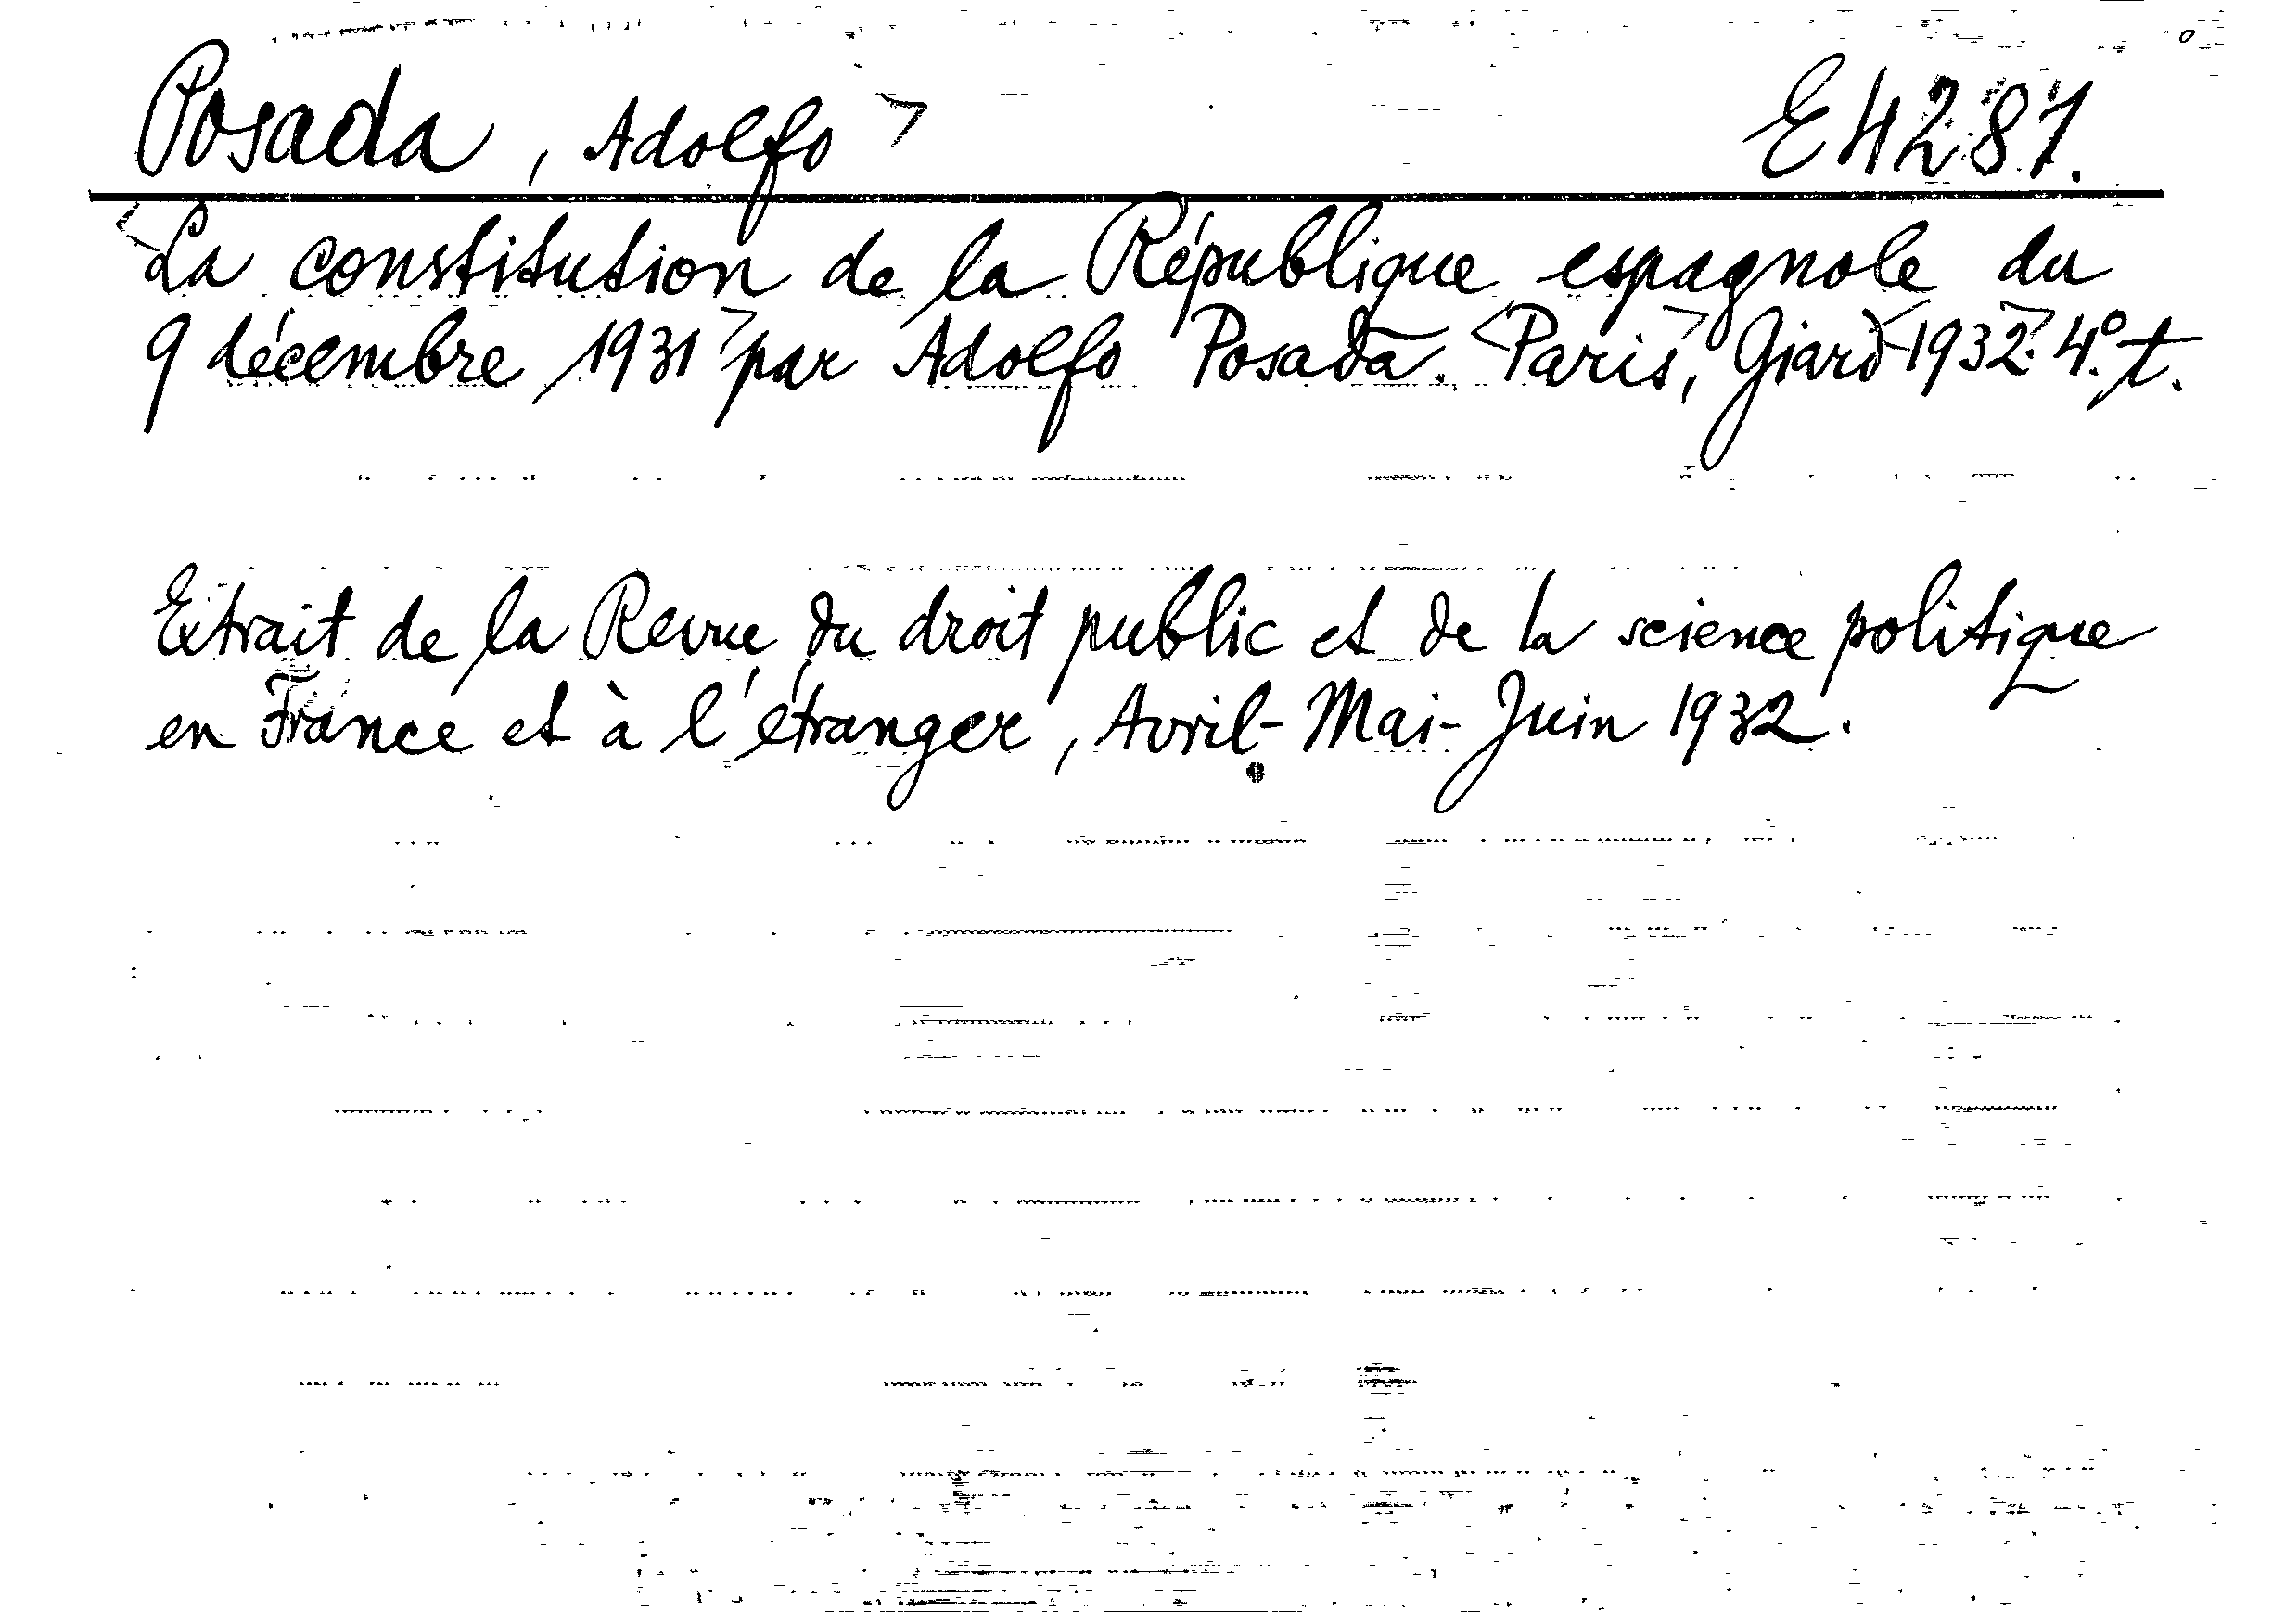 Posada, Adolfo E 4287.
La constitution de la République espagnole du
9 décembre 1931 par Adolfo Posada. Paris, Giard 1932. 4º. t.
Extrait de la Revue du droit public et de la science politique
en France et à l'étranger, Avril-Mai-Juin 1932.